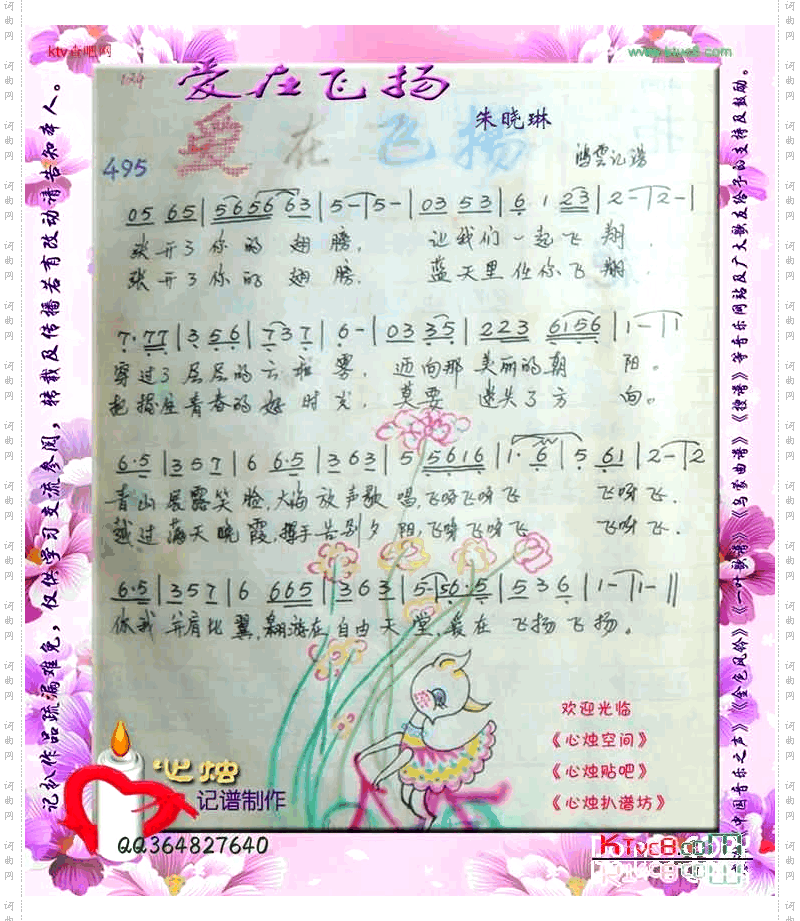 ktv查吧网
www.ktvc8.com
爱在飞扬
爱在飞扬
朱晓琳
鸿雲记谱
495
05 65|5656 63|5-|5-|03 53|6 1 23|2-|2-|
张开了你的翅膀, 让我们一起飞翔.
张开了你的翅膀, 蓝天里任你飞翔.
7·77|3 56|737|6-|03 35|223 6156|1-|1
穿过了层层的云和雾, 迈向那美丽的朝阳。
把握住青春的好时光, 莫要迷失了方向。
6·5|357|6 6·5|363|5 5616|1·6|5 61|2-|2
青山展露笑脸,大海放声歌唱,飞呀飞呀飞 飞呀飞.
越过满天晚霞,挥手告别夕阳,飞呀飞呀飞 飞呀飞.
6·5|357|6 665|363|5-|56·5|536|1-|1-||
你我并肩比翼,翱游在自由天堂,爱在飞扬飞扬。
欢迎光临
《心烛空间》
《心烛贴吧》
《心烛扒谱坊》
心烛
记谱制作
QQ364827640
KTvc8.com
记扒作品疏漏难免，仅供学习交流参阅，转载及传播若有改动请告知本人。
中国音乐之声》《金色风铃》《一叶歌谱》《乌蒙曲谱》《搜谱》等音乐网站及广大歌友给予的支持及鼓励。
词曲网